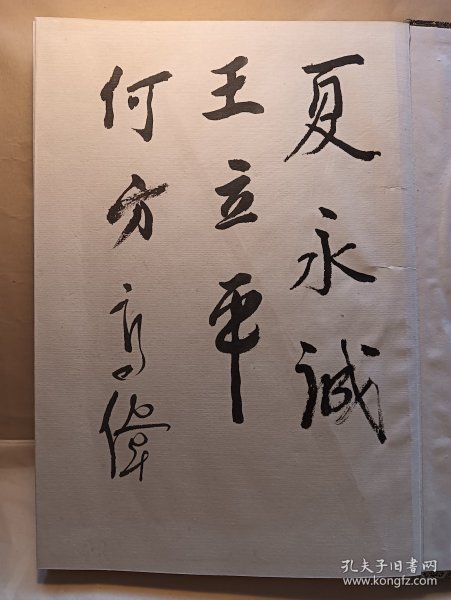 夏永诚
王立平
何方 高伟
孔夫子旧书网
www.kongfz.com